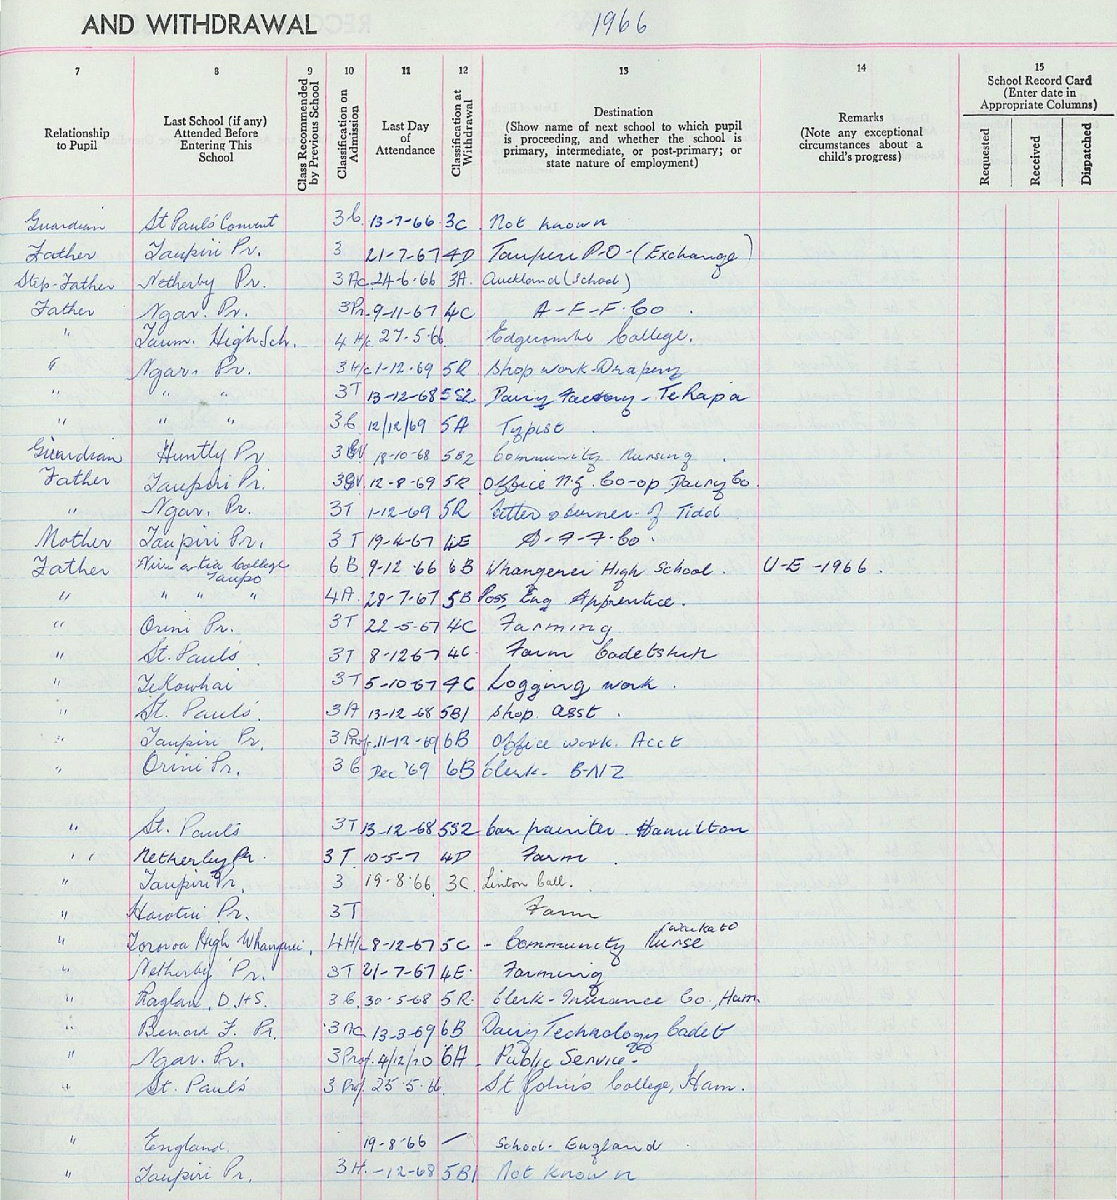 AND WITHDRAWAL 1966
7 8 9 10 11 12 13 14 15
Relationship to Pupil
Last School (if any) Attended Before Entering This School
Class Recommended by Previous School
Classification on Admission
Last Day of Attendance
Classification at Withdrawal
Destination
(Show name of next school to which pupil is proceeding, and whether the school is primary, intermediate, or post-primary; or state nature of employment)
Remarks
(Note any exceptional circumstances about a child's progress)
School Record Card
(Enter date in Appropriate Columns)
Requested Received Dispatched
Guardian St Paul's Convent 3C 13-7-66 3C Not known
Father Taupiri Pr. 3 21-7-67 4D Taupiri P-O-(Exchange)
Step-Father Netherby Pr. 3Ac 24-6-66 3A. Auckland (School)
Father Ngar. Pr. 3Pr 9-11-67 4C A-F-F-Co.
" Taum. High Sch. 4 H/c 27-5-66 Edgecumbe College.
" Ngar. Pr. 3 H/c 1-12-69 5R Shop work-Drapery
" " " 3T 13-12-68 5S2 Dairy Factory - Te Rapa
" " " 3C 12/12/69 5A Typist.
Guardian Huntly Pr 18-10-68 5B2 Community Nursing.
Father Taupiri Pr. 12-8-69 5R Office N.Z. Co-op Dairy Co.
" Ngar. Pr. 3T 1-12-69 5R
Mother Taupiri Pr. 3T 19-4-67 4E A-F-F-Co.
Father College Taupo 6B 9-12-66 6B Whangarei High School. U-E-1966.
" " " " 4A 28-7-67 5B Poss Eng Apprentice.
" Orini Pr. 3T 22-5-67 4C Farming
" St. Pauls 3T 8-12-67 4C. Farm Cadetship
" TeKowhai 3T 5-10-67 4C Logging work.
" St. Paul's. 3A 13-12-68 5B1 Shop asst.
" Taupiri Pr. 3 Prof. 11-12-69 6B Office work. Acct
" Orini Pr. 3C Dec '69 6B Clerk- B-NZ
" St. Paul's 3T 13-12-68 5S2 Car painter. Hamilton
" " Netherby Pr. 3T. 10-5-7 4D Farm.
" Taupiri Pr. 3 19-8-66 3C Linton Coll.
" Horotiu Pr. 3T Farm
" High Whangarei. 4H/c 8-12-67 5C - Community (Waikato) Nurse
" Netherby Pr. 3T 21-7-67 4E. Farming
" Raglan. D.H.S. 3C. 30-5-68 5R. Clerk-Insurance Co., Ham.
" Bernard F. Pr. 3Ac 13-3-69 6B Dairy Technology Cadet
" Ngar. Pr. 3Prof. 4/12/70 6A - Public Service.
" St. Paul's 3 Prof. 25-5-66. St John's College, Ham.
" England. 19-8-66 – School-England
" Taupiri Pr. 3H. -12-68 5B1 Not known